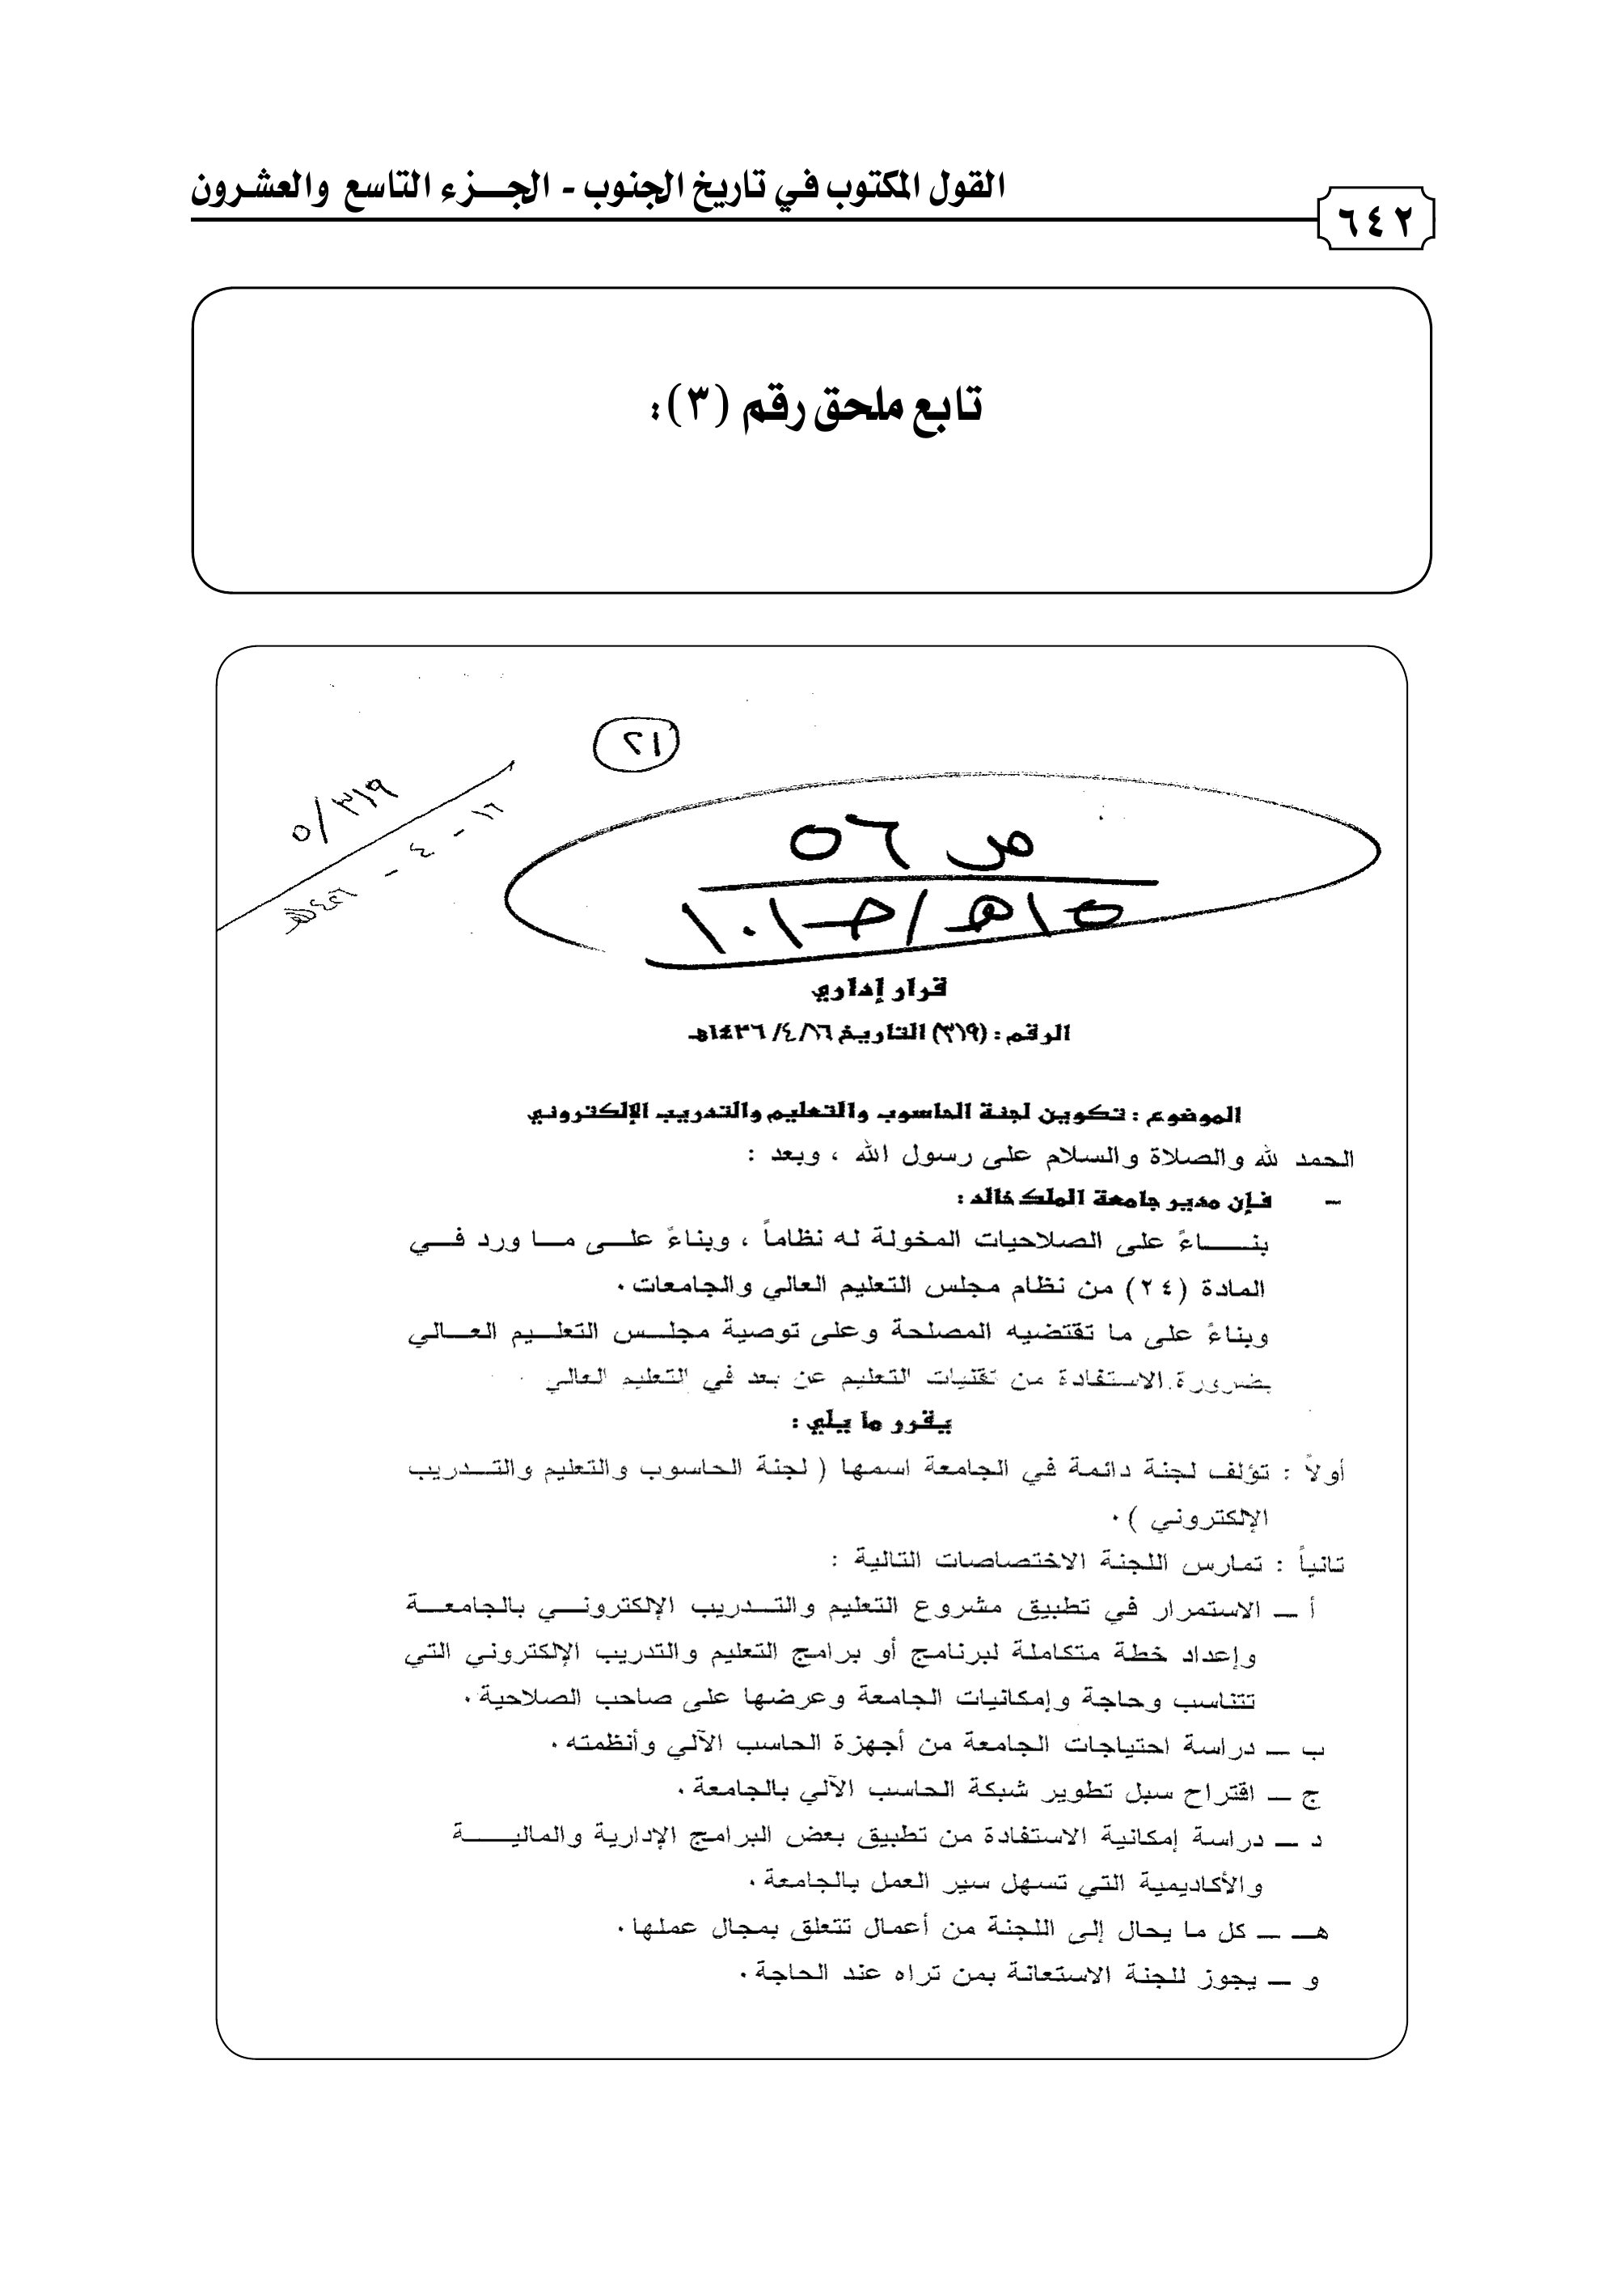 القول المكتوب في تاريخ الجنوب - الجـــزء التاسع والعشرون
٦٤٢
تابع ملحق رقم (٣):
٢١
٥/٣١٩
١٦ - ٤ -
ص ٥٦
قرار إداري
الرقم : (٣١٩) التاريخ ١٦/٤/١٤٢٦هـ
الموضوع : تكوين لجنة الحاسوب والتعليم والتدريب الإلكتروني
الحمد لله والصلاة والسلام على رسول الله ، وبعد :
– فإن مدير جامعة الملك خالد :
بنـــاءً على الصلاحيات المخولة له نظاماً ، وبناءً علـى مـا ورد فـي
المادة (٢٤) من نظام مجلس التعليم العالي والجامعات.
وبناءً على ما تقتضيه المصلحة وعلى توصية مجلـس التعلـيم العـالي
بضرورة الاستفادة من تقنيات التعليم عن بعد في التعليم العالي
يقرر ما يلي :
أولاً : تؤلف لجنة دائمة في الجامعة اسمها ( لجنة الحاسوب والتعليم والتـدريب
الإلكتروني ).
ثانياً : تمارس اللجنة الاختصاصات التالية :
أ ــ الاستمرار في تطبيق مشروع التعليم والتـدريب الإلكترونـي بالجامعـة
وإعداد خطة متكاملة لبرنامج أو برامج التعليم والتدريب الإلكتروني التي
تتناسب وحاجة وإمكانيات الجامعة وعرضها على صاحب الصلاحية.
ب ــ دراسة احتياجات الجامعة من أجهزة الحاسب الآلي وأنظمته.
ج ــ اقتراح سبل تطوير شبكة الحاسب الآلي بالجامعة.
د ــ دراسة إمكانية الاستفادة من تطبيق بعض البرامج الإدارية والماليـــة
والأكاديمية التي تسهل سير العمل بالجامعة.
هـ ــ كل ما يحال إلى اللجنة من أعمال تتعلق بمجال عملها.
و ــ يجوز للجنة الاستعانة بمن تراه عند الحاجة.